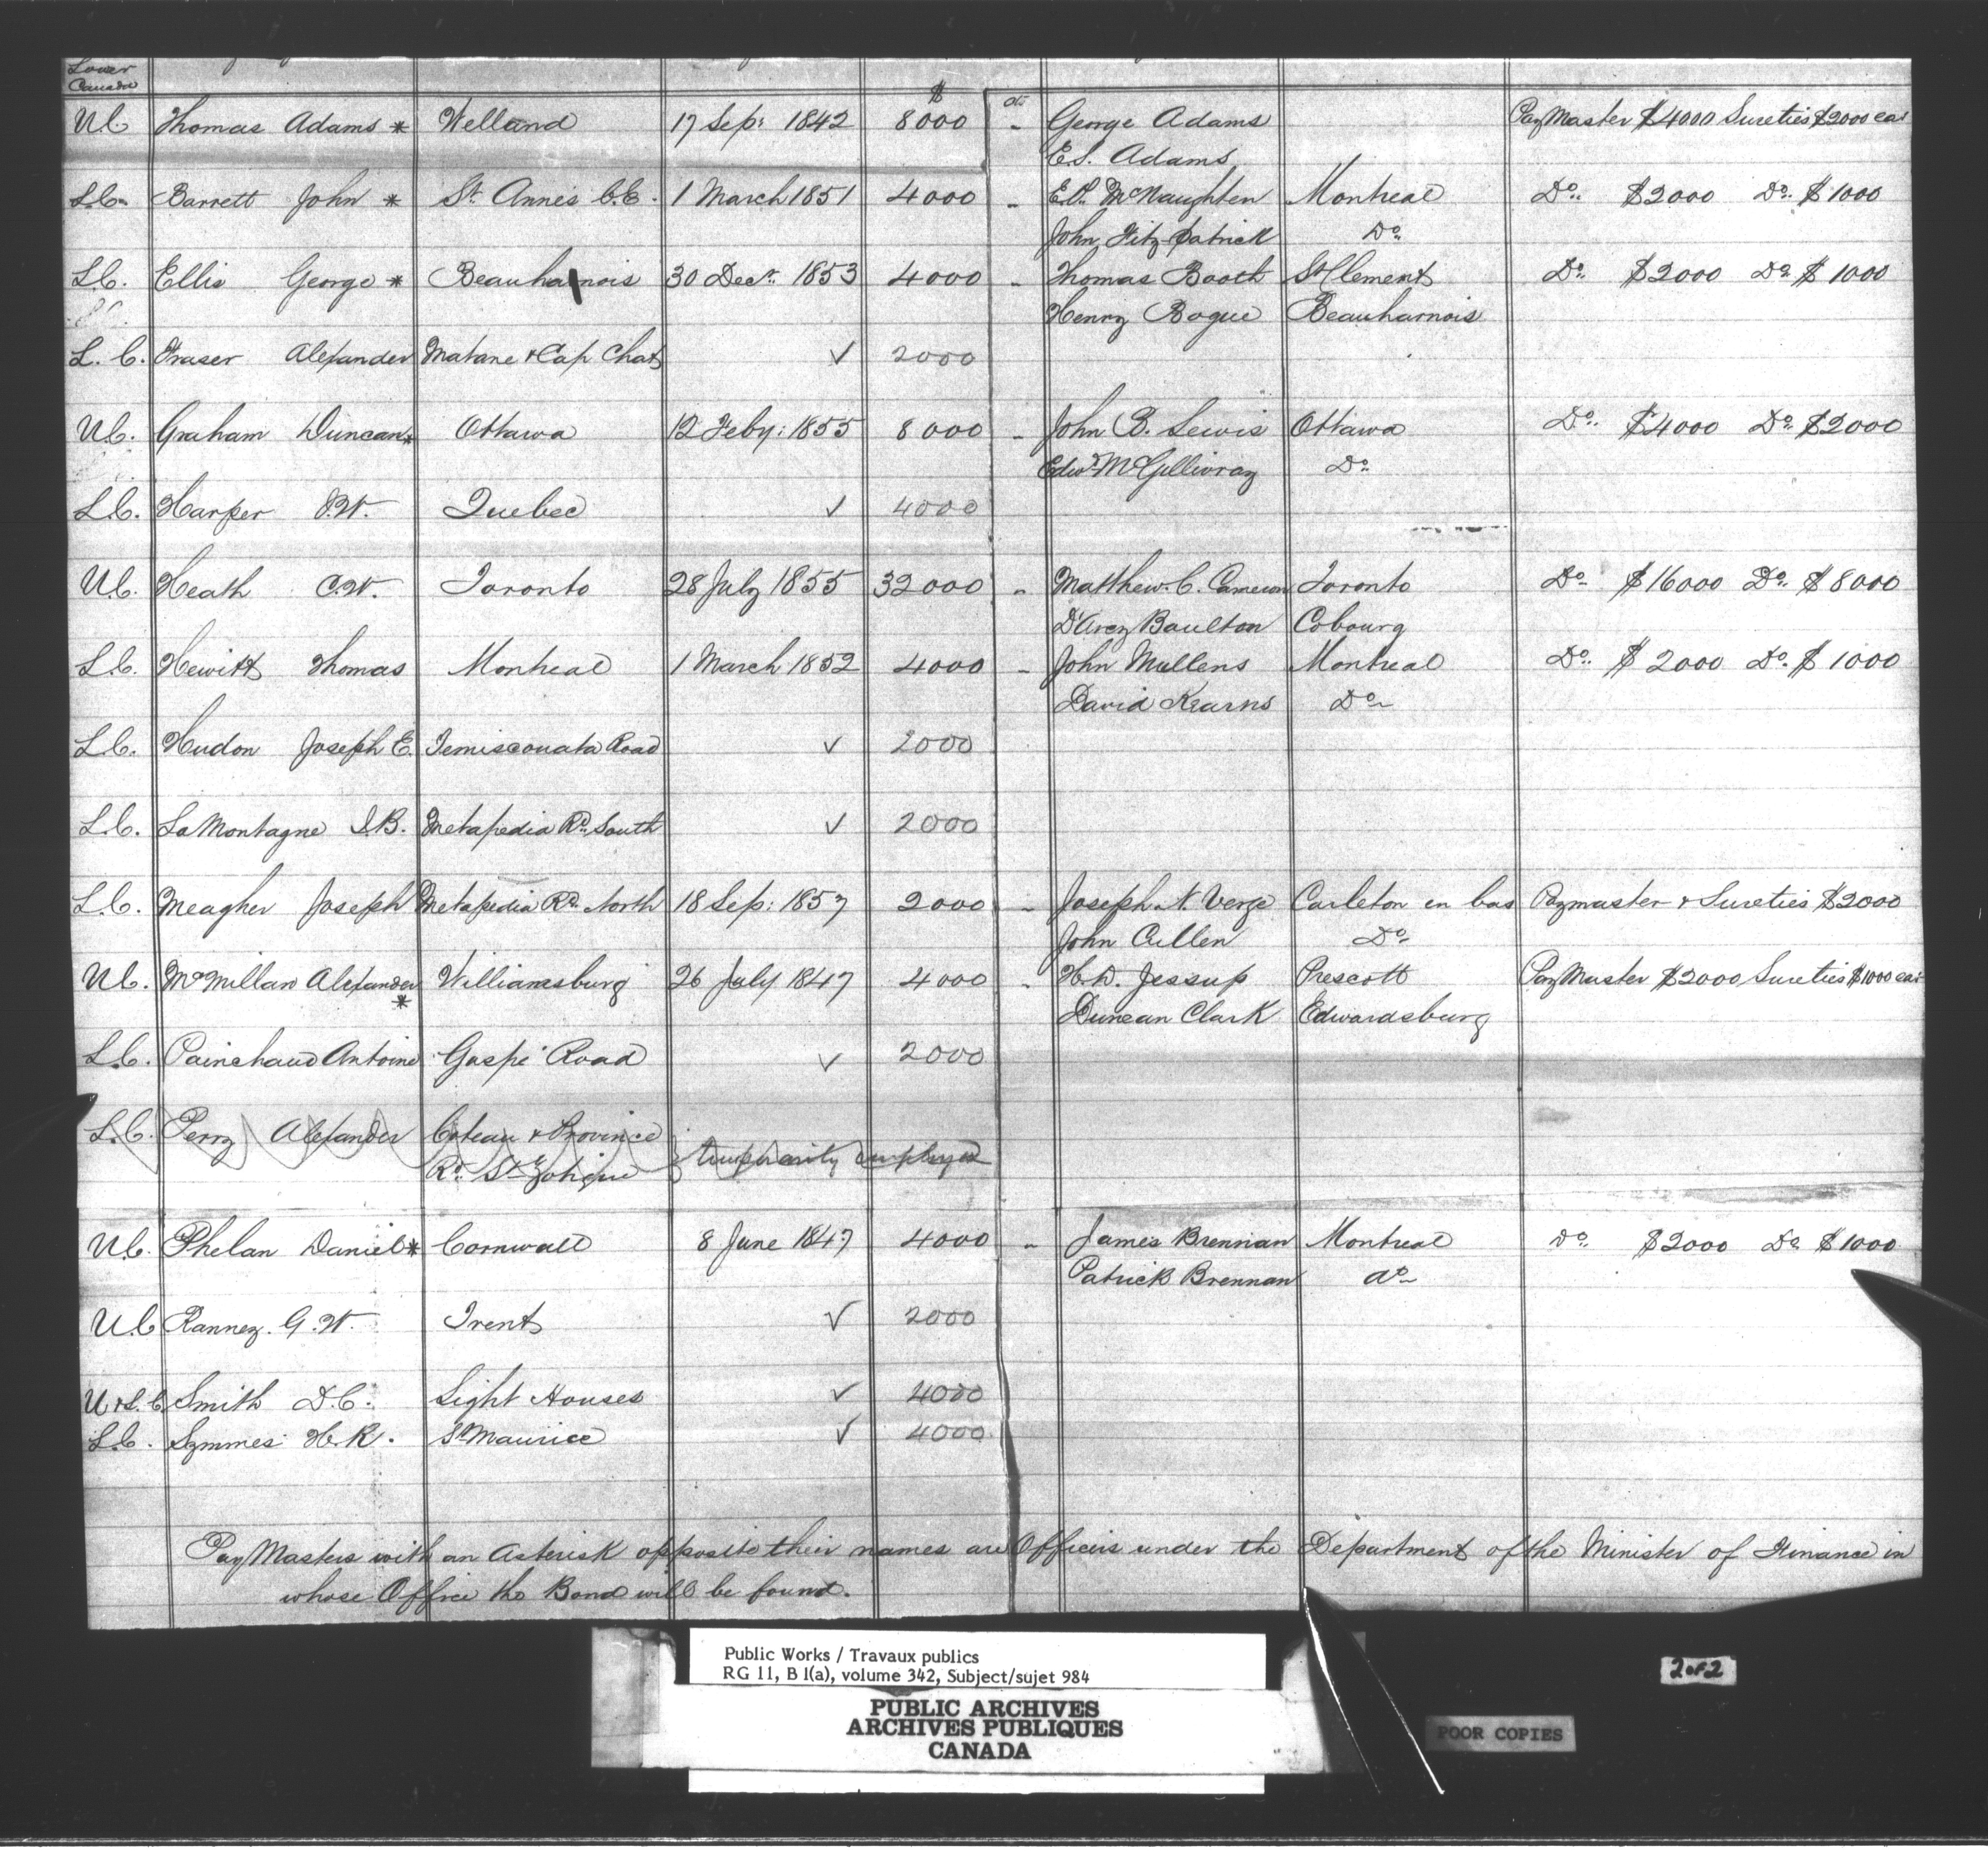 Lower
Canada
$
U.C. Thomas Adams * Welland 17 Sep: 1842 8000 - George Adams PayMaster $4000 Sureties $2000 each
E.S. Adams
L.C. Barrett John * St. Annes C.C. 1 March 1851 4000 - E.P. McNaughten Montreal Do. $2000 Do. $1000
John Fitz-patrick Do
L.C. Ellis George * Beauharnois 30 Decr. 1853 4000 - Thomas Booth St Clement Do. $2000 Do $1000
Henry Bogue Beauharnois
L.C. Fraser Alexander Matane & Cap Chat ✓ 2000
U.C. Graham Duncan * Ottawa 12 Feby: 1855 8000 - John B. Lewis Ottawa Do. $4000 Do. $2000
Edwd McGillivray Do
L.C. Harper Quebec ✓ 4000
U.C. Heath C.W. Toronto 28 July 1855 32000 - Matthew. C. Cameron Toronto Do $16000 Do. $8000
D'Arcy Boulton Cobourg
L.C. Hewitt Thomas Montreal 1 March 1852 4000 - John Mullens Montreal Do. $2000 Do. $1000
David Kearns Do
L.C. Hudon Joseph E. Temiscouata Road ✓ 2000
L.C. LaMontagne Metapedia Rd. South ✓ 2000
L.C. Meagher Joseph Metapedia Rd. North 18 Sep: 1857 2000 - Joseph N. Verge Carleton en bas Paymaster & Sureties $2000
John Cullen Do
U.C. McMillan Alexander Williamsburg 26 July 1847 4000 - H.D. Jessup Prescott PayMaster $2000 Sureties $1000 each
* Duncan Clark Edwardsburg
L.C. Painchaud Antoine Gaspé Road ✓ 2000
L.C. Perry Alexander Coteau & Province
Rd. St Zotique temporarily employed
U.C. Phelan Daniel * Cornwall 8 June 1847 4000 - James Brennan Montreal Do. $2000 Do $1000
Patrick Brennan do
U.C. Ranney. G.W. Trent ✓ 2000
U & L.C. Smith D.C. Light Houses ✓ 4000
L.C. Symmes H.K. St Maurice ✓ 4000
PayMasters with an Asterisk opposite their names are Officers under the Department of the Minister of Finance in
whose Office the Bond will be found.
Public Works / Travaux publics
RG 11, B 1(a), volume 342, Subject/sujet 984
PUBLIC ARCHIVES
ARCHIVES PUBLIQUES
CANADA
2 of 2
POOR COPIES